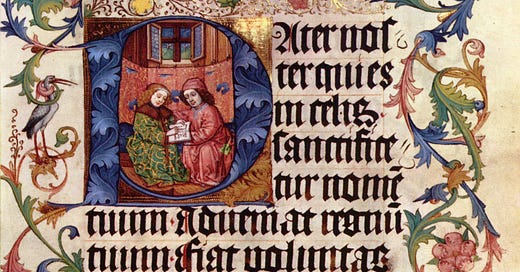 Pater nos
ter qui es
in celis
sanctifice
tur nomē
tuum · Adueniat regnū
tuum · Fiat voluntas